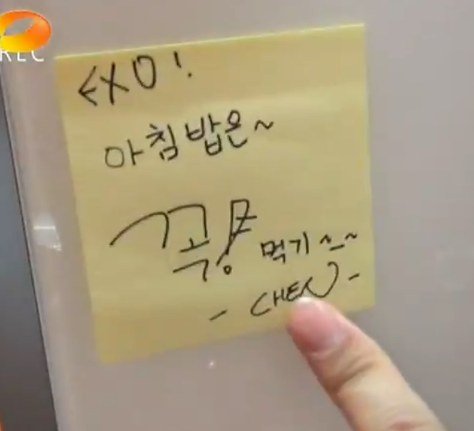 REC
EXO!
아침밥은~
꼭! 먹기 ~_~
- CHEN -